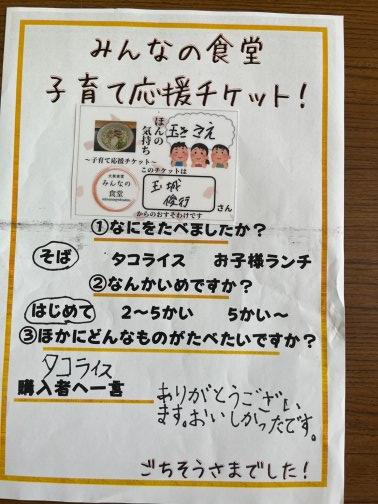 みんなの食堂
子育て応援チケット！
ほんの
気持ち
～子育て応援チケット～
みんなの
食堂
このチケットは
玉城
さん
からのおすそわけです
①なにをたべましたか？
そば タコライス お子様ランチ
②なんかいめですか？
はじめて 2～5かい 5かい～
③ほかにどんなものがたべたいですか？
タコライス
購入者へ一言
ありがとうござい
ます。おいしかったです。
ごちそうさまでした！